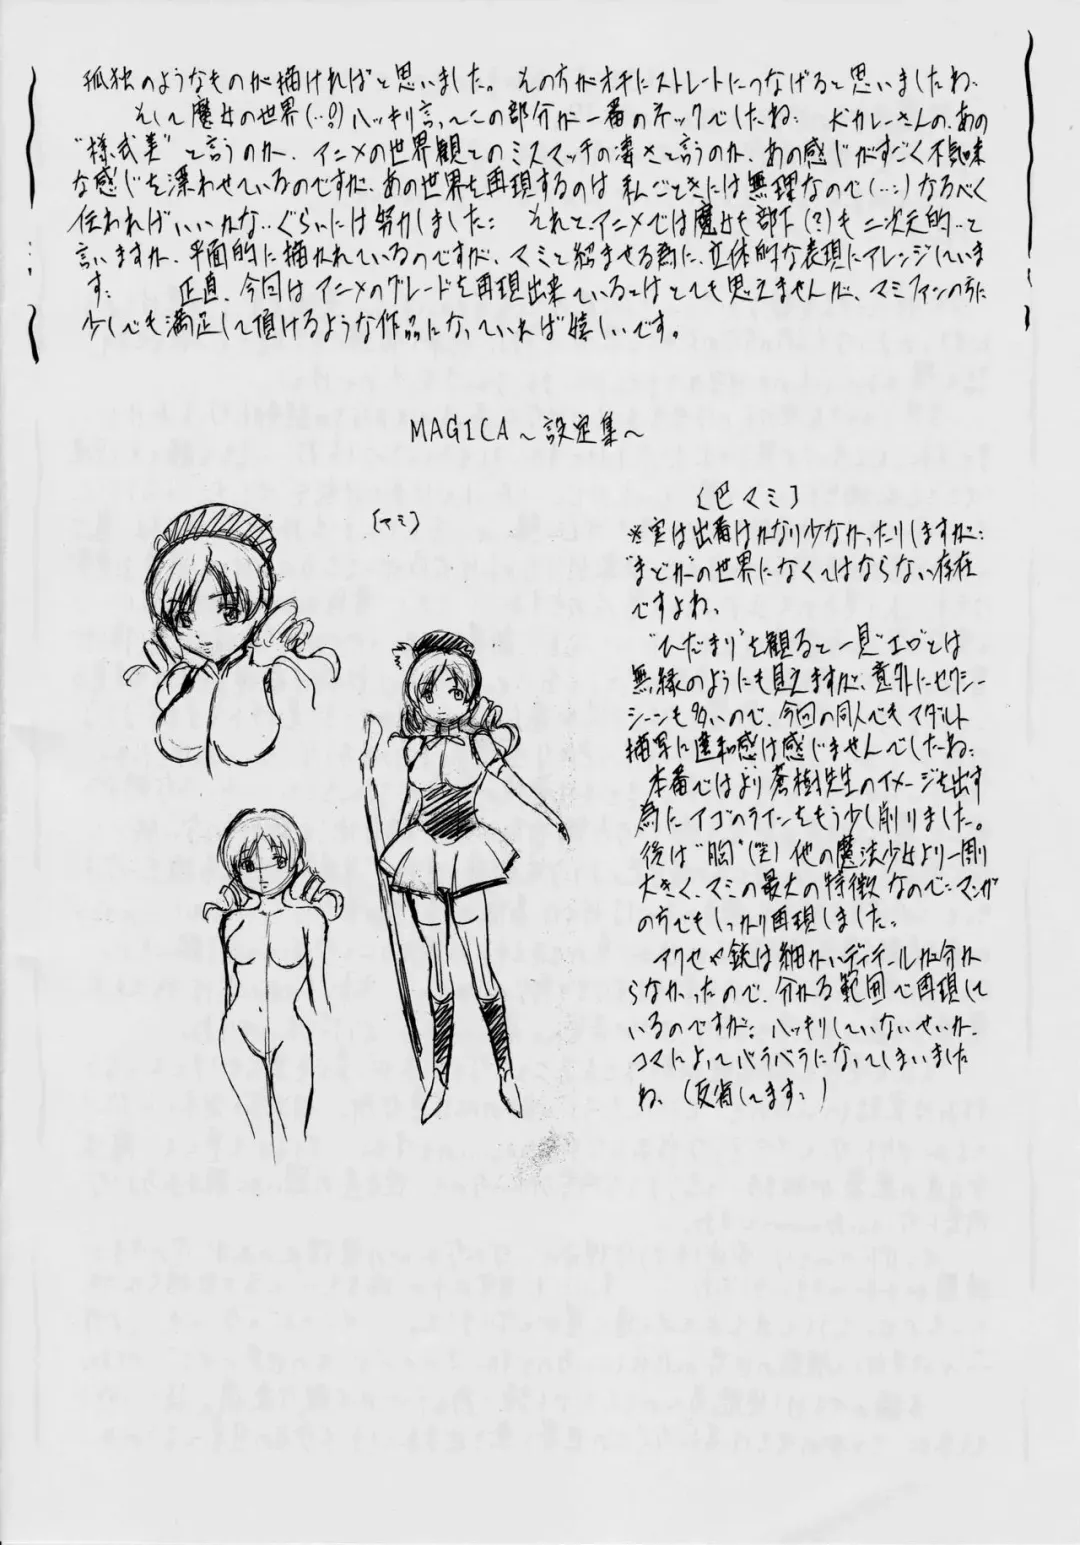 孤独のようなものが描ければと思いました。その方がオチにストレートにつなげると思いましたね.
そして魔女の世界(…?)ハッキリ言ってこの部分が一番のネックでしたね… 犬カレーさんの、あの
"様式美"と言うのか、アニメの世界観とのミスマッチの凄さと言うのか、あの感じがすごく不気味
な感じを漂わせているのですが、あの世界を再現するのは私ごときには無理なので(…;)なるべく
伝わればいいかな…ぐらいには努力しました…それと、アニメでは魔女も部下(?)も二次元的…と
言いますか、平面的に描かれているのですが、マミと絡ませる為に、立体的な表現にアレンジしていま
す… 正直、今回はアニメのグレードを再現出来ているとはとても思えませんが、マミファンの方に
少しでも満足して頂けるような作品になっていれば嬉しいです。
MAGICA～設定集～
[マミ]
[巴マミ]
※実は出番はかなり少なかったりしますが…
"まどか"の世界になくてはならない存在
ですよね、
"ひだまり"を観ると一見"エロ"とは
無縁のようにも見えますが、意外にセクシー
シーンも多いので、今回の同人でもアダルト
描写に違和感は感じませんでしたね…
本番ではより蒼樹先生のイメージを出す
為にアゴのラインをもう少し削りました。
後は"胸"(笑)他の魔法少女より一割
大きく、マミの最大の特徴なので…マンガ
の方でもしっかり再現しました…
アクセや銃は細かいディテールが分か
らなかったので、分かる範囲で再現して
いるのですが…ハッキリしていないせいか、
コマによってバラバラになってしまいました
ね、(反省してます…)